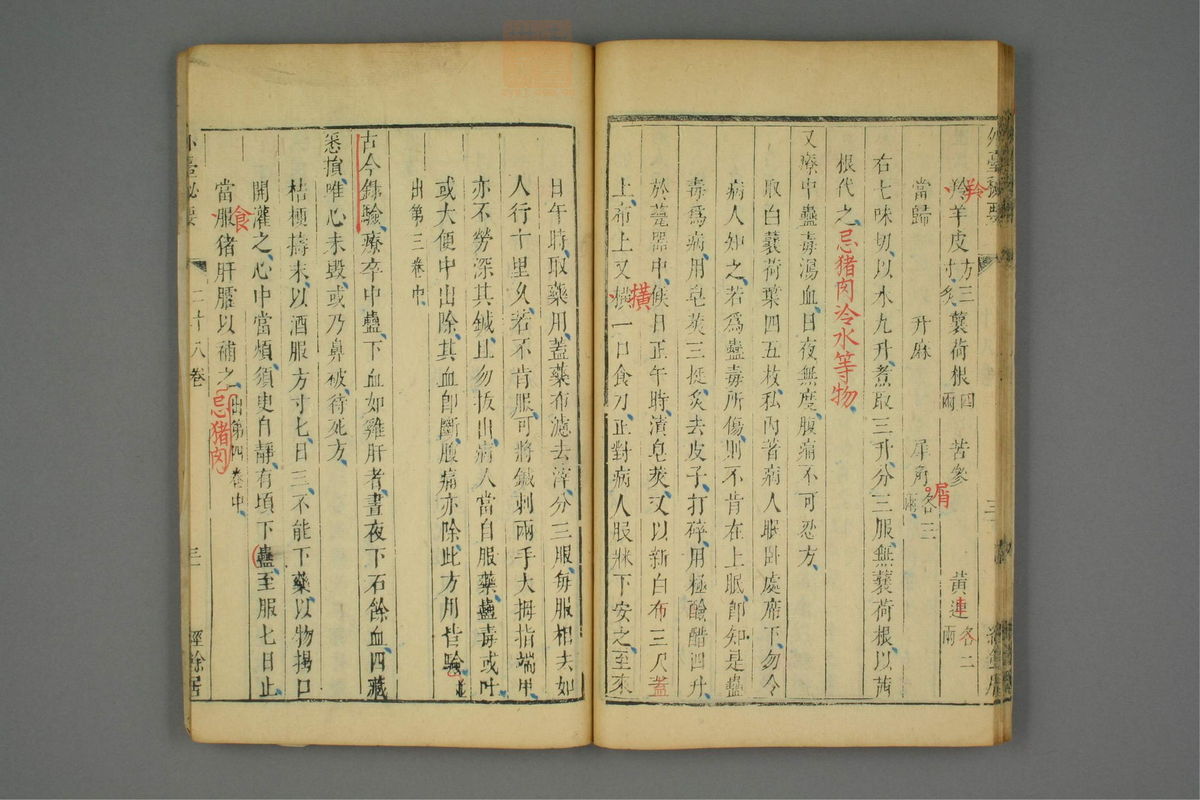 外臺秘要
羚羊皮方三寸炙 蘘荷根四兩 苦參 黃連各二兩
羚
當歸 升麻 犀角各三兩
屑
右七味切以水九升煮取三升分三服無蘘荷根以茜
根代之忌猪肉冷水等物
又療中蠱毒瀉血日夜無度腹痛不可忍方
取白蘘荷葉四五枚私內著病人眠臥處席下勿令
病人知之若爲蠱毒所傷則不肯在上眠卽知是蠱
毒爲病用皂莢三挺炙去皮子打碎用極醶醋四升
於甕器中候日正午時漬皂莢又以新白布三尺蓋
上布上又橫一口食刀正對病人眠牀下安之至來
橫
日午時取藥用蓋藥布濾去滓分三服每服相去如
人行十里久若不肯服可將鍼刺兩手大拇指端甲
亦不勞深其鍼且勿拔出病人當自服藥蠱毒或吐
或大便中出除其血卽斷腹痛亦除此方用皆驗並
出第三卷中
古今錄驗療卒中蠱下血如雞肝者晝夜下石餘血四藏
悉損唯心未毀或乃鼻破待死方
桔梗擣末以酒服方寸匕日三不能下藥以物拗口
開灌之心中當煩須臾自靜有頃下蠱至服七日止
當服猪肝臛以補之出第四卷中忌猪肉
食
外臺秘要
二十八卷
三
經餘居